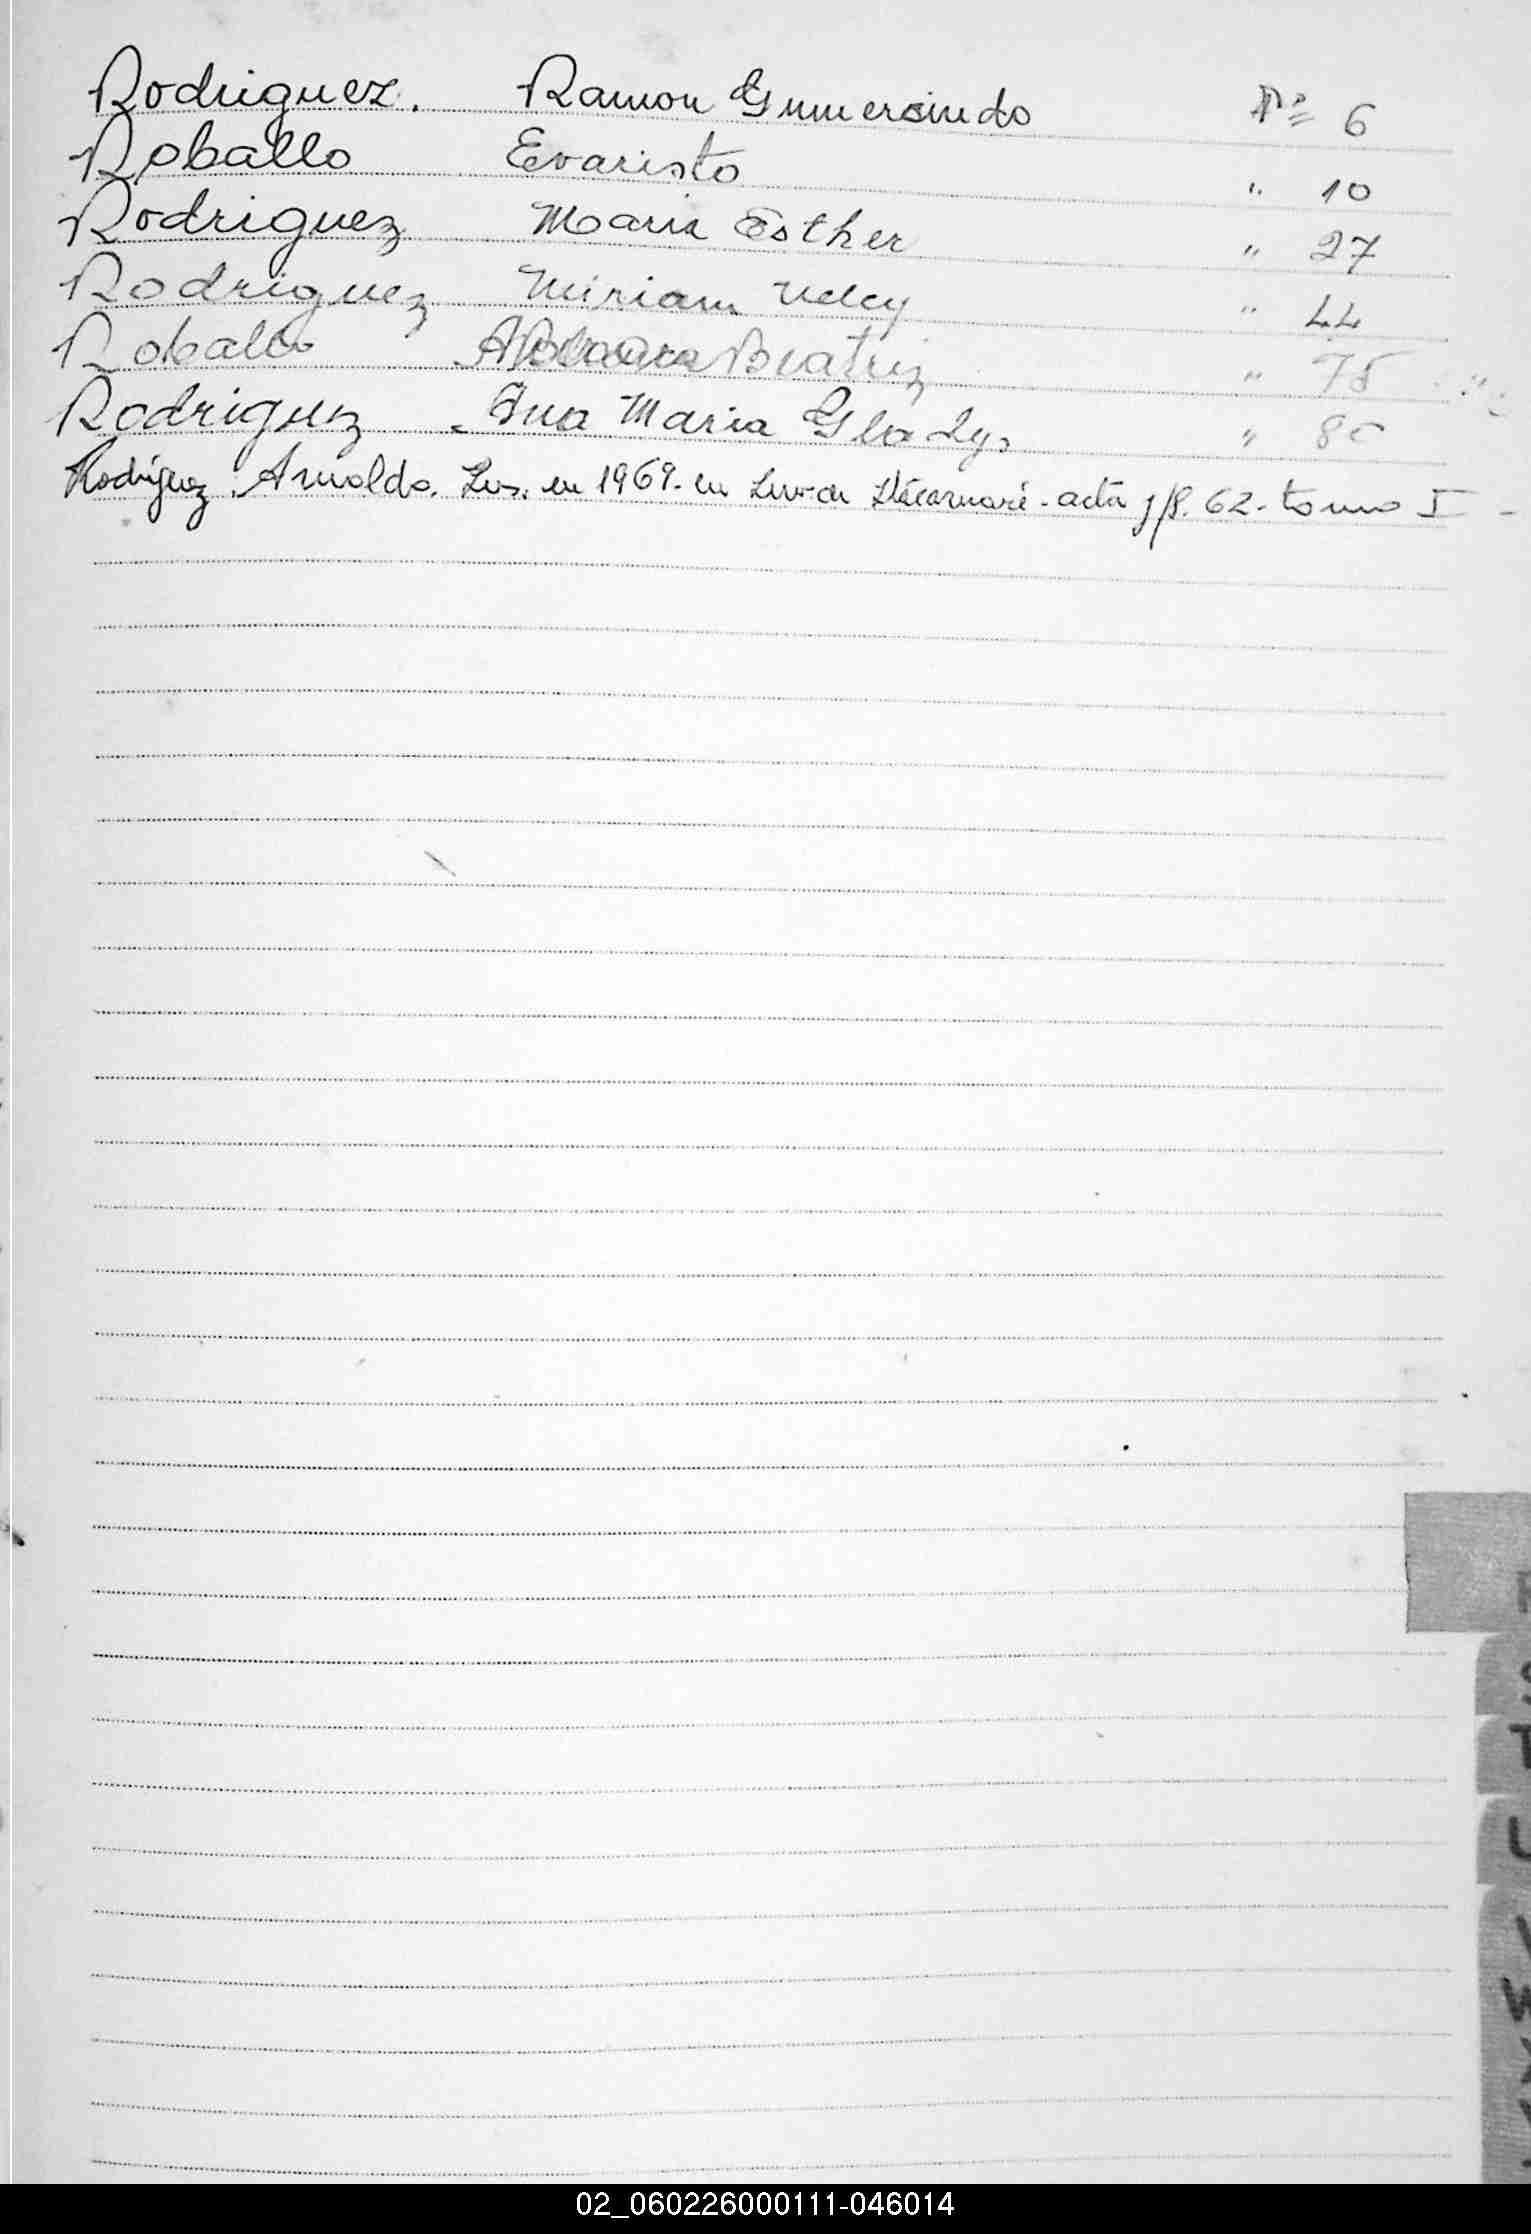 Rodriguez. Ramon Gumersindo Nº 6
Roballo Evaristo " 10
Rodriguez Maria Esther " 27
Rodriguez Miriam Nelcy " 44
Roballo Beatriz " 75
Rodriguez Ana Maria Gladys " 80
Rodríguez Arnoldo. Ins. en 1969. en acta 62. tomo I -
S
T
U
V
W
X
02_060226000111-046014